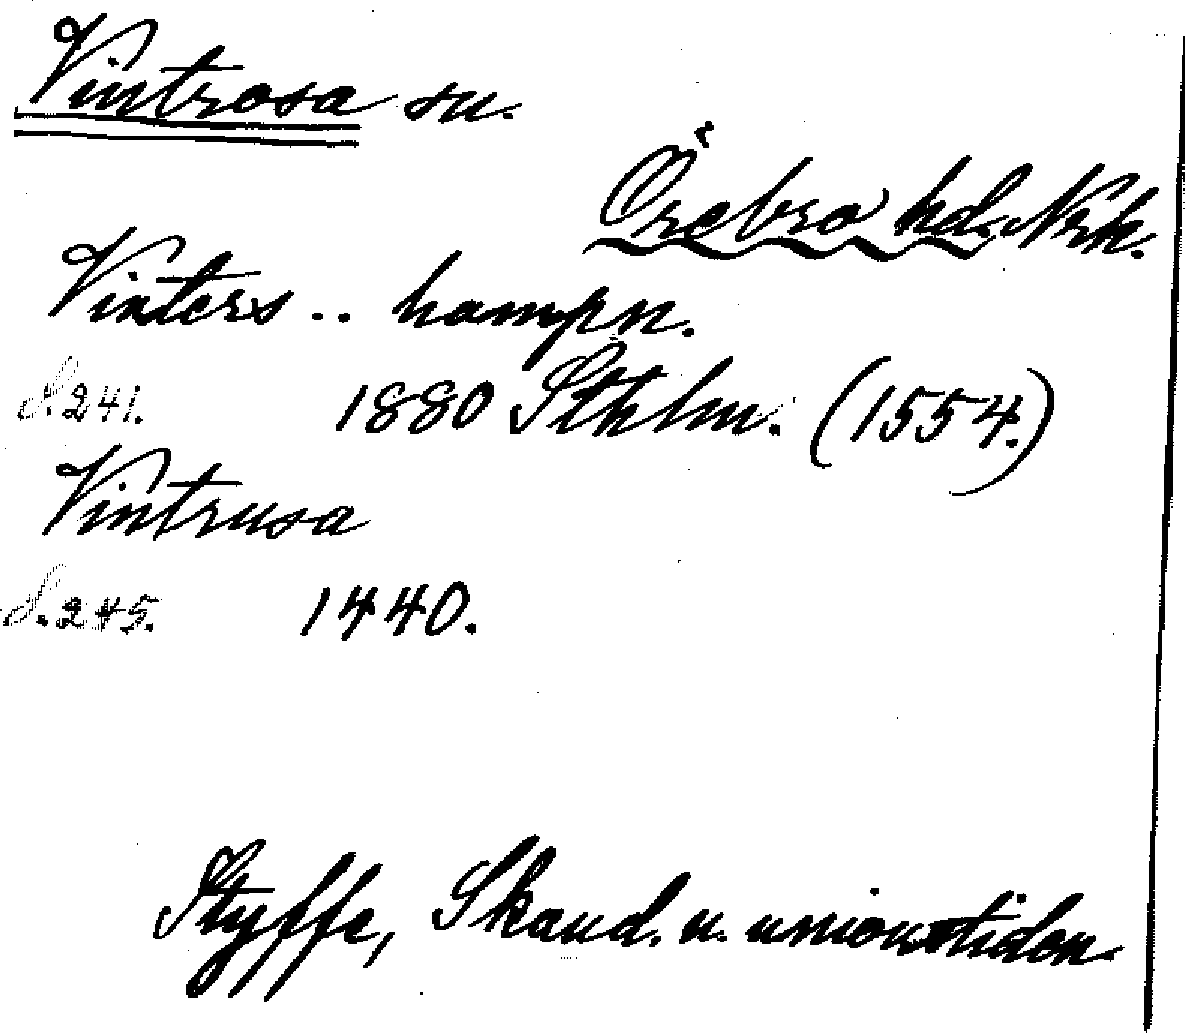 Vintrosa sn.
Örebro hd, Nrk.
Vinters .. hampn.
S. 241. 1880 Sthlm. (1554.)
Vintrusa
S. 245. 1440.
Styffe, Skand. u. unionstiden.